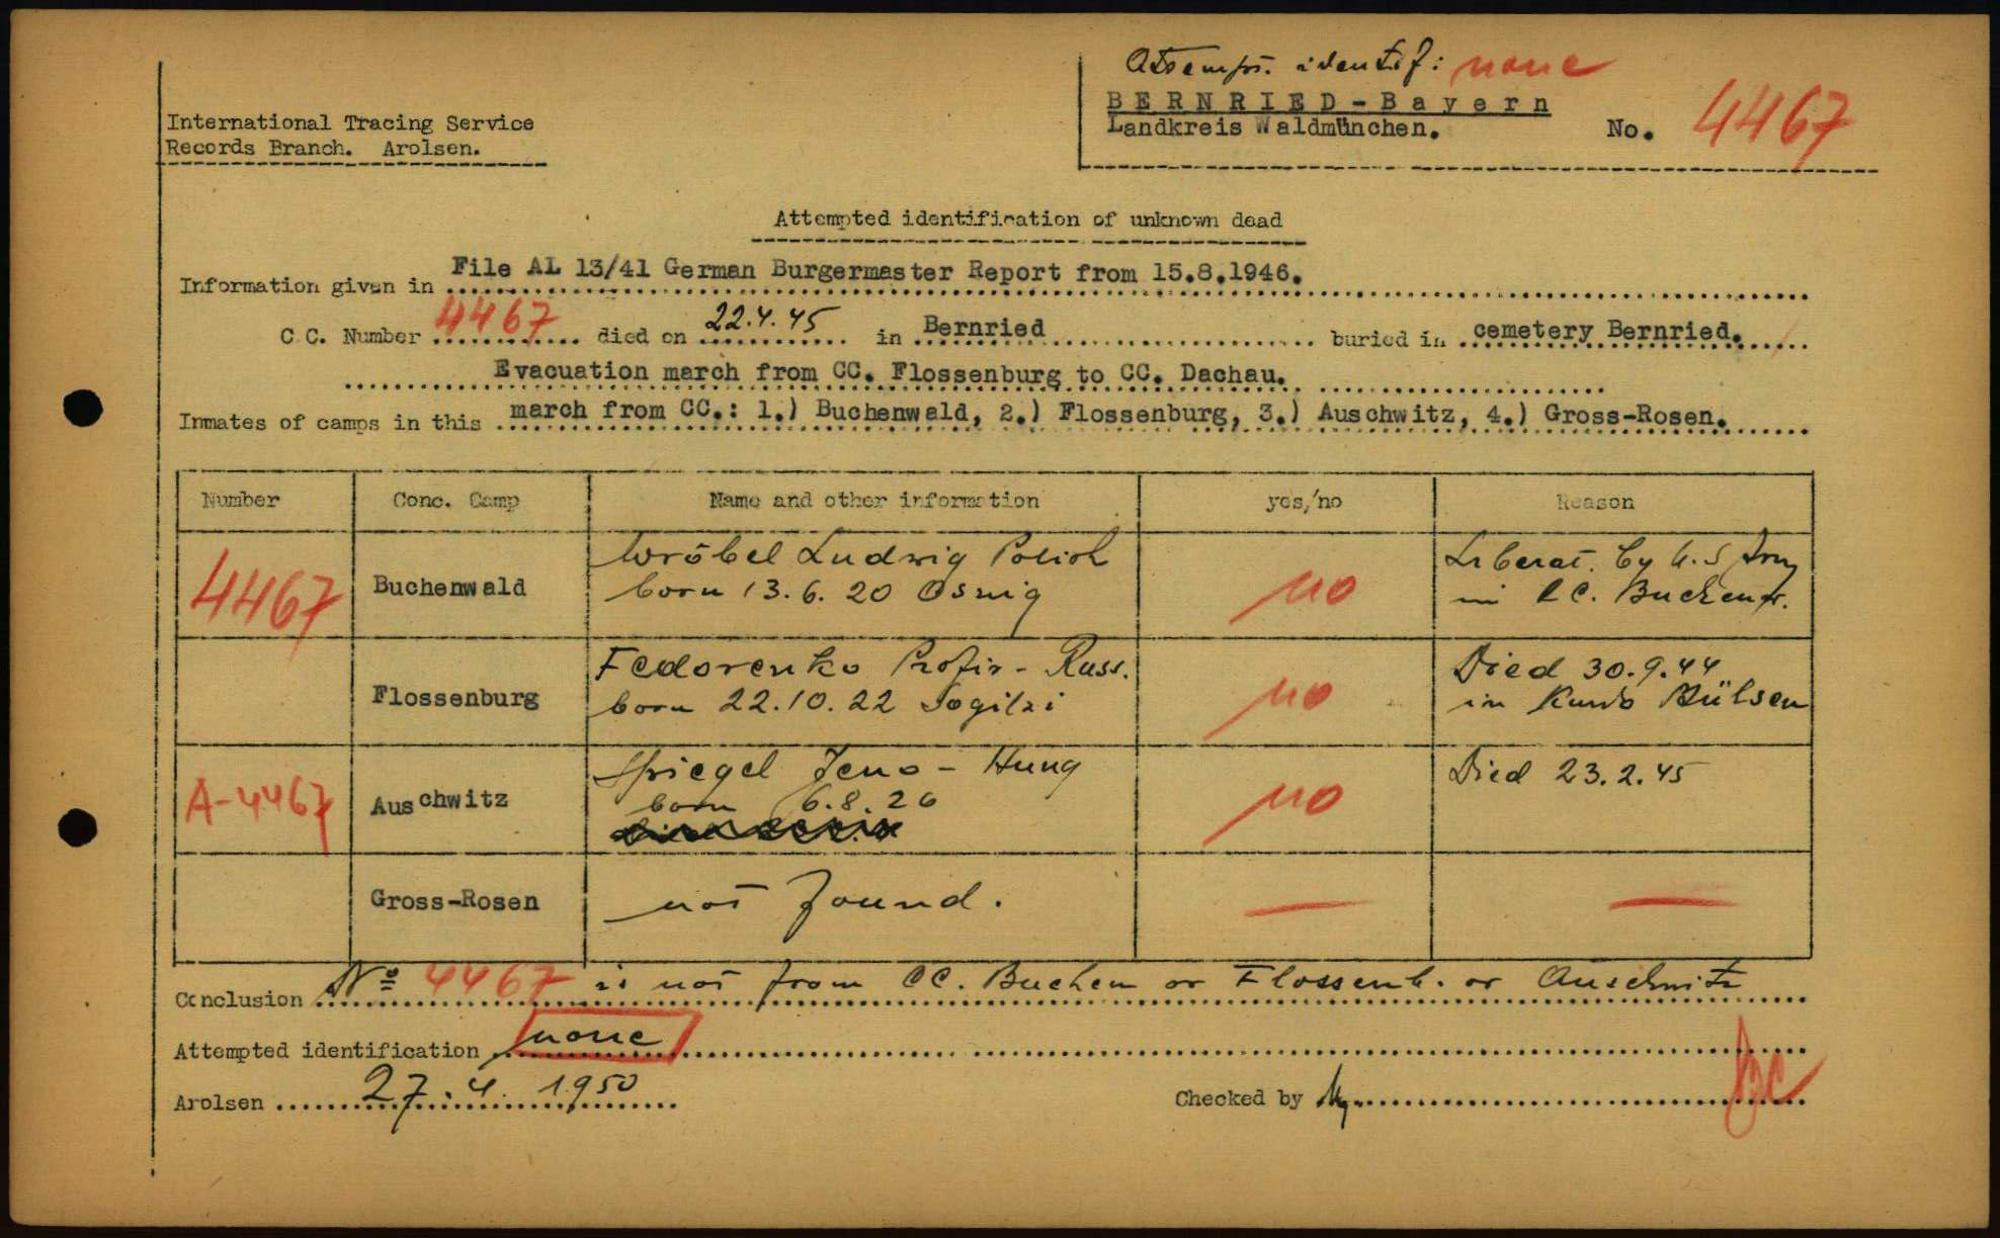 Attempt. identif: none
BERNRIED-Bayern
Landkreis Waldmünchen. No. 4467
International Tracing Service
Records Branch. Arolsen.
Attempted identification of unknown dead
Information given in File AL 13/41 German Burgermaster Report from 15.8.1946.
C.C. Number 4467 died on 22.4.45 in Bernried buried in cemetery Bernried.
Evacuation march from CC. Flossenburg to CC. Dachau.
Inmates of camps in this march from CC.: 1.) Buchenwald, 2.) Flossenburg, 3.) Auschwitz, 4.) Gross-Rosen.
Number Conc. Camp Name and other information yes/no Reason
4467 Buchenwald Wróbel Ludwig Polish no Liberat. by U.S Army
born 13.6.20 in CC. Buchenw.
Flossenburg Fedorenko - Russ. no Died 30.9.44
born 22.10.22 in
A-4467 Auschwitz Spiegel Jeno - Hung no Died 23.2.45
born 6.8.26
Gross-Rosen not found. — —
Conclusion Nº 4467 is not from CC. Buchen or Flossenb. or Auschwitz
Attempted identification none
Arolsen 27.4.1950 Checked by